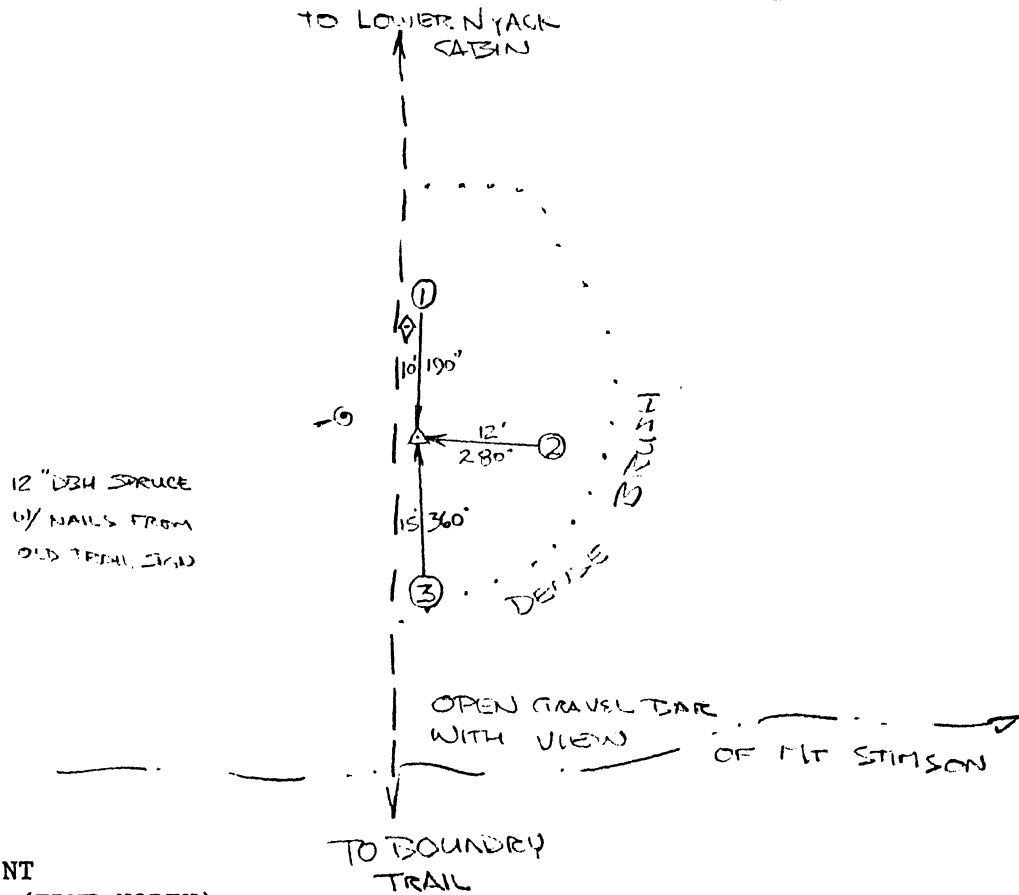 TO LOWER NYACK
CABIN
①
10' 190°
12'
280°
②
15' 360°
③
12" DBH SPRUCE
W/ NAILS FROM
OLD TRAIL SIGN
DENSE
BRUSH
OPEN GRAVEL BAR
WITH VIEW
OF MT STIMSON
TO BOUNDRY
TRAIL
NT